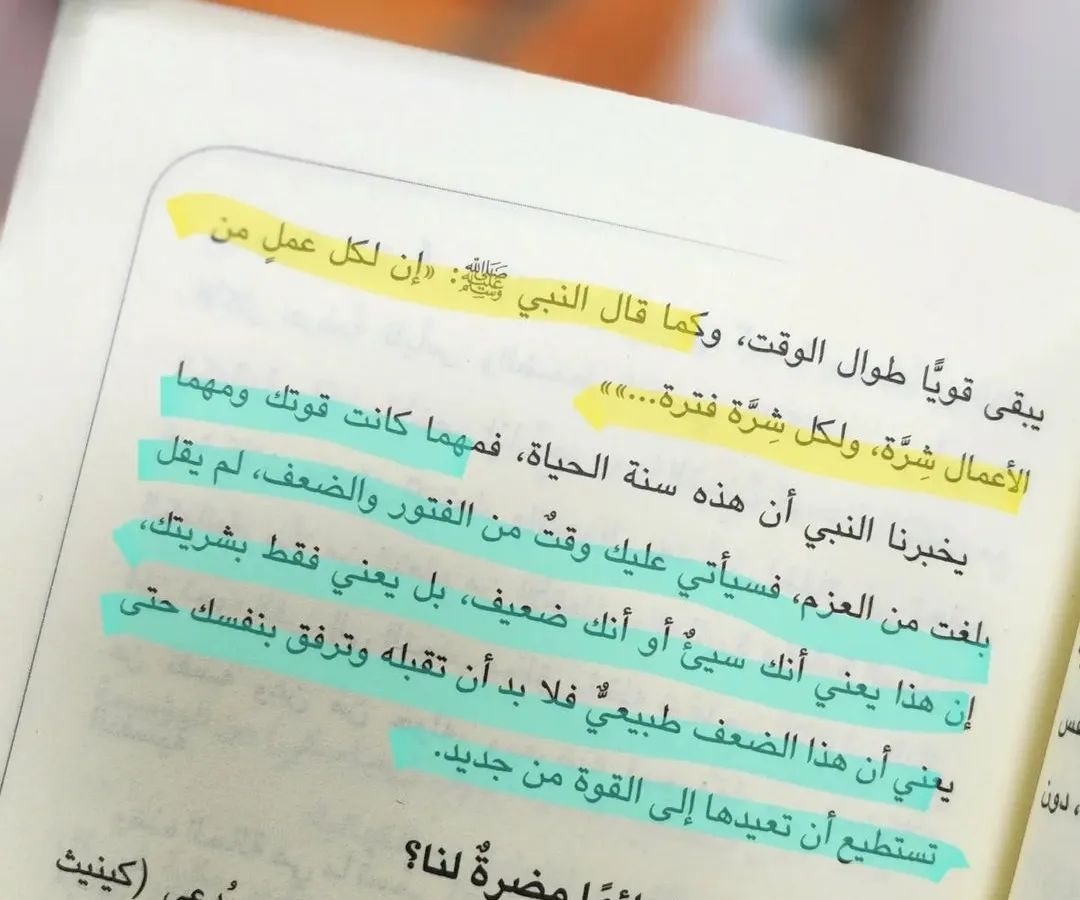 يبقى قويًّا طوال الوقت، وكما قال النبي ﷺ: «إن لكل عملٍ من
الأعمال شِرَّة، ولكل شِرَّة فترة...»»
يخبرنا النبي أن هذه سنة الحياة، فمهما كانت قوتك ومهما
بلغت من العزم، فسيأتي عليك وقتٌ من الفتور والضعف، لم يقل
إن هذا يعني أنك سيئٌ أو أنك ضعيف، بل يعني فقط بشريتك،
يعني أن هذا الضعف طبيعيٌّ فلا بد أن تقبله وترفق بنفسك حتى
تستطيع أن تعيدها إلى القوة من جديد.
مضرةٌ لنا؟
(كينيث
، دون